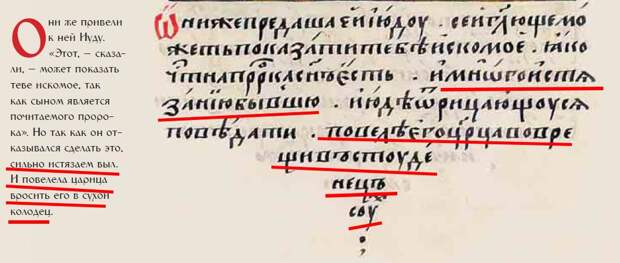 Они же привели
к ней Иуду.
«Этот, — сказа-
ли, — может показать
тебе искомое, так
как сыном является
почитаемого проро-
ка». Но так как он от-
казывался сделать это,
сильно истязаем был.
И повелела царица
бросить его в сухой
колодец.
ѡниже предаша ей июдоу . сеи гл҃юще мо
жеть показати тебѣ искомое . ꙗко
есть . имнѡгоистѧ
занїю бывшю . июдѣ ѿрицающоусѧ
поведати . повелѣ его цр҃ца вовре
щи въ стоуде
нецъ
соух